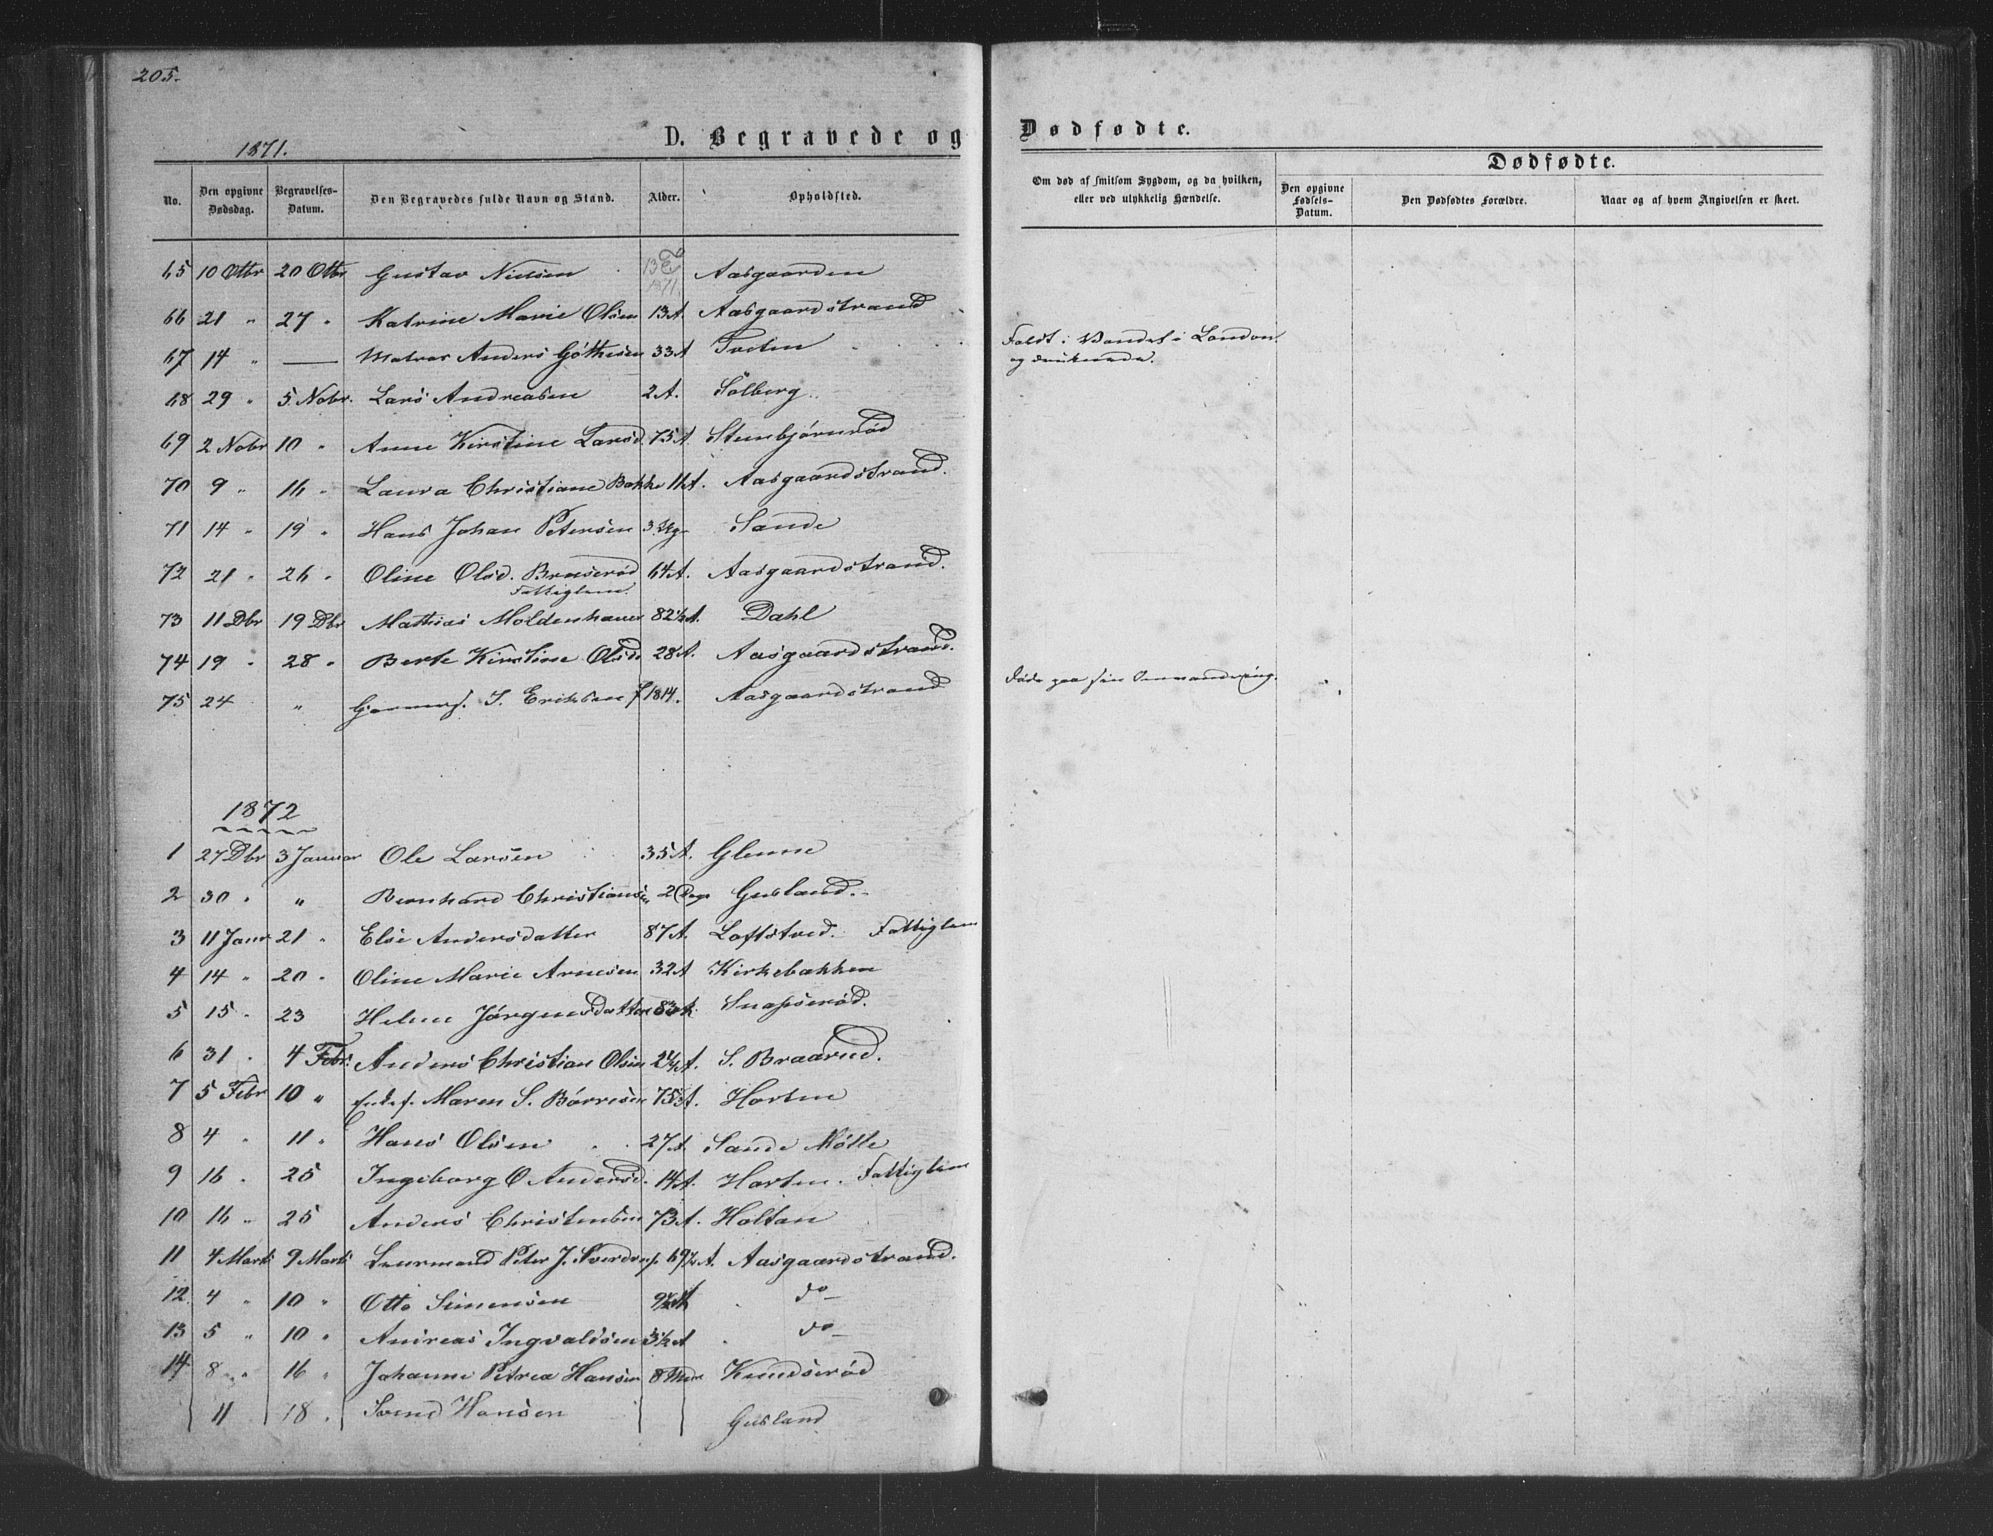 205.
1871.
D. Begravede og Dødfødte.
No. Den opgivne Dødsdag. Begravelses-Datum. Den Begravedes fulde Navn og Stand. Alder. Opholdsted. Om død af smitsom Sygdom, og da hvilken, eller ved ulykkelig Hændelse. Dødfødte. Den opgivne Fødsels-Datum. Den Dødfødtes Forældre. Naar og af hvem Angivelsen er skeet.
65 10 Otbr 20 Otbr Gustav Nielsen 1871 Aasgaarden
66 21 " 27 " Katrine Marie Olsen 13 A. Aasgaardstrand
67 14 " — Matros Anders Gøthesen 33 A Tveten Faldt i Vandet i London
og druknede.
68 29 " 5 Nobr. Lars Andreasen 2 A. Solberg
69 2 Nobr 10 " Anne Kirstine Larsd. 75 A. Steenbjørnrød
70 9 " 16 " Laura Christiane Bakke 11 A. Aasgaardstrand.
71 14 " 19 " Hans Johan Petersen 3 Ug. Sande
72 21 " 26 " Oline Olsd. Bruserød 64 A. Aasgaardstrand.
Fattiglem
73 11 Dbr 19 Dbr Mathias Moldenhauer 82½ A. Dahl
74 19 " 28 " Berte Kirstine Olsd 28 A. Aasgaardstrand.
75 24 " S. Eriksen f 1814. Aasgaardstrand Døde paa sin
1872
1 27 Dbr 3 Januar Ole Larsen 35 A. Glenne
2 30 " " Bernhard Christiansen 2 Dage Gusland.
3 11 Janr 21 " Else Andersdatter 87 A. Loftstved. Fattiglem
4 14 " 20 " Oline Marie Arnesen 32 A Kirkebakken
5 15 " 23 Helene Jørgensdatter 83 A. Snapserød.
6 31 " 4 Febr. Anders Christian Olsen 2¼ A. S. Braarud.
7 5 Febr 10 " Enkef. Maren S. Børresen 75 A. Horten
8 4 " 11 " Hans Olsen 27 A. Sande Mølle
9 16 " 25 Ingeborg O Andersd. 14 A. Horten. Fattiglem
10 16 " 25 Anders Christensen 73 A. Holtan
11 4 Marts 9 Marts Peter J. Sverdrup 69½ A. Aasgaardstrand.
12 4 " 10 " Otto Simensen 9½ do
13 5 " 10 " Andreas Ingvaldsen 3½ A do
14 8 " 16 " Johanne Petrea Hansen 8 Mdr Knudserød
11 18 " Svend Hansen Gusland